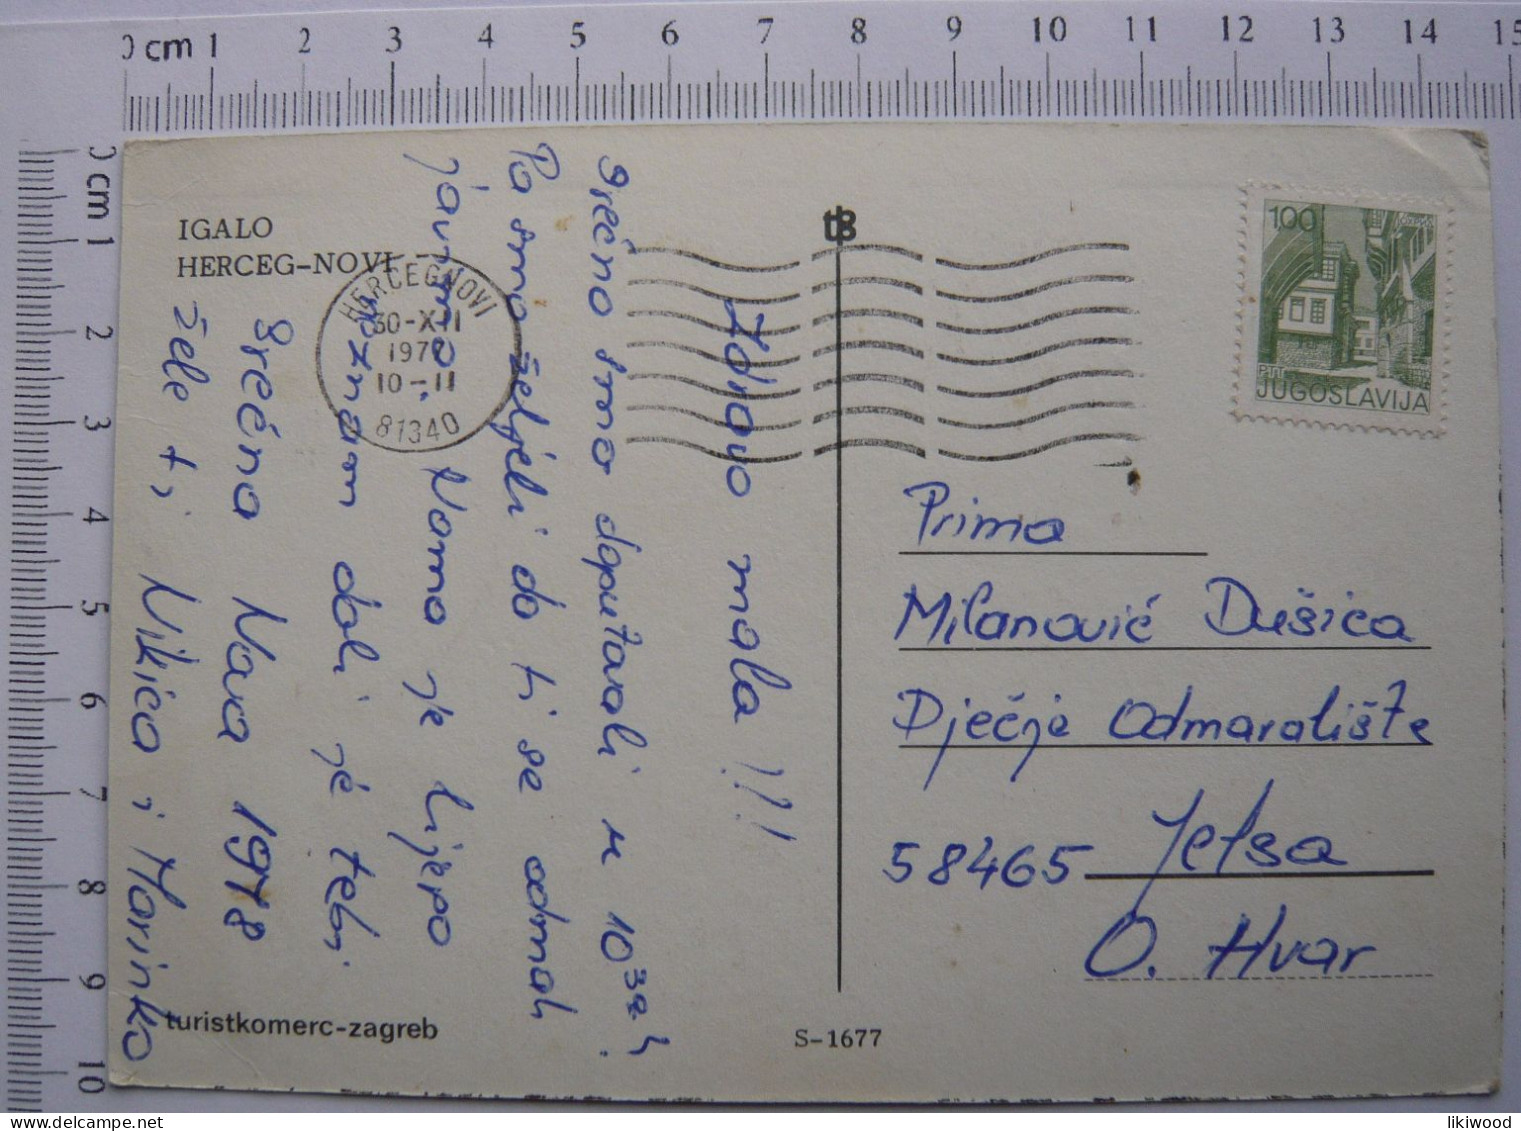 0 cm 1 2 3 4 5 6 7 8 9 10 11 12 13 14 15
0 cm 1 2 3 4 5 6 7 8 9 10
IGALO
HERCEG-NOVI
HERCEGNOVI
30-XII
1977
10-11
81340
100
PTT
JUGOSLAVIJA
Zdravo mala!!!
Srećno smo doputovali u 10 30 h.
Pa smo željeli da ti se odmah
javimo. Nama je lijepo
neznam dali je tebi.
Srećna Nova 1978
žele ti Nikica i Marinko
Prima
Milanović Dušica
Dječje Odmaralište
58465 Jelsa
O. Hvar
turistkomerc-zagreb
S-1677
likiwood